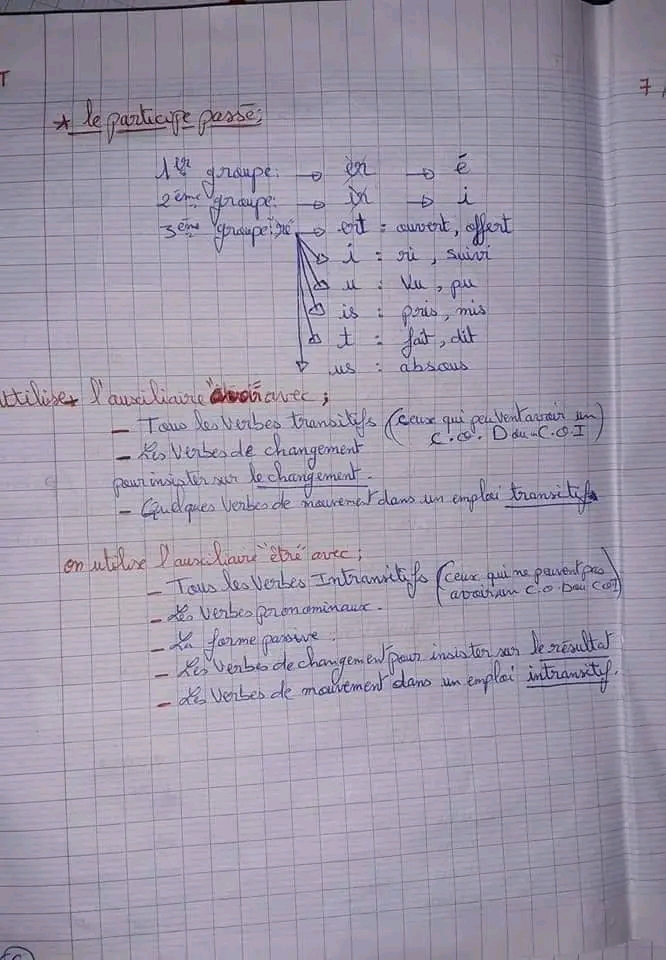 T
7
* le participe passé;
1er groupe: → er → é
2ème groupe: → ir → i
3ème groupe: → ert = ouvert, offert
i = ri, suivi
u = Vu, pu
is = pris, mis
t = fait, dit
us = absous
utilise l'auxiliaire "avoir" avec;
— Tous les Verbes transitifs (ceux qui peuvent avoir un
C.O.D ou C.O.I)
— Les Verbes de changement
pour insister sur le changement.
— Quelques Verbes de mouvement dans un emploi transitif
on utilise l'auxiliaire "être" avec;
— Tous les Verbes Intransitifs (ceux qui ne peuvent pas
avoir un C.O.D ou COI)
— Les Verbes pronominaux.
— La forme passive.
— Les Verbes de changement pour insister sur le résultat
— Les Verbes de mouvement dans un emploi intransitif.